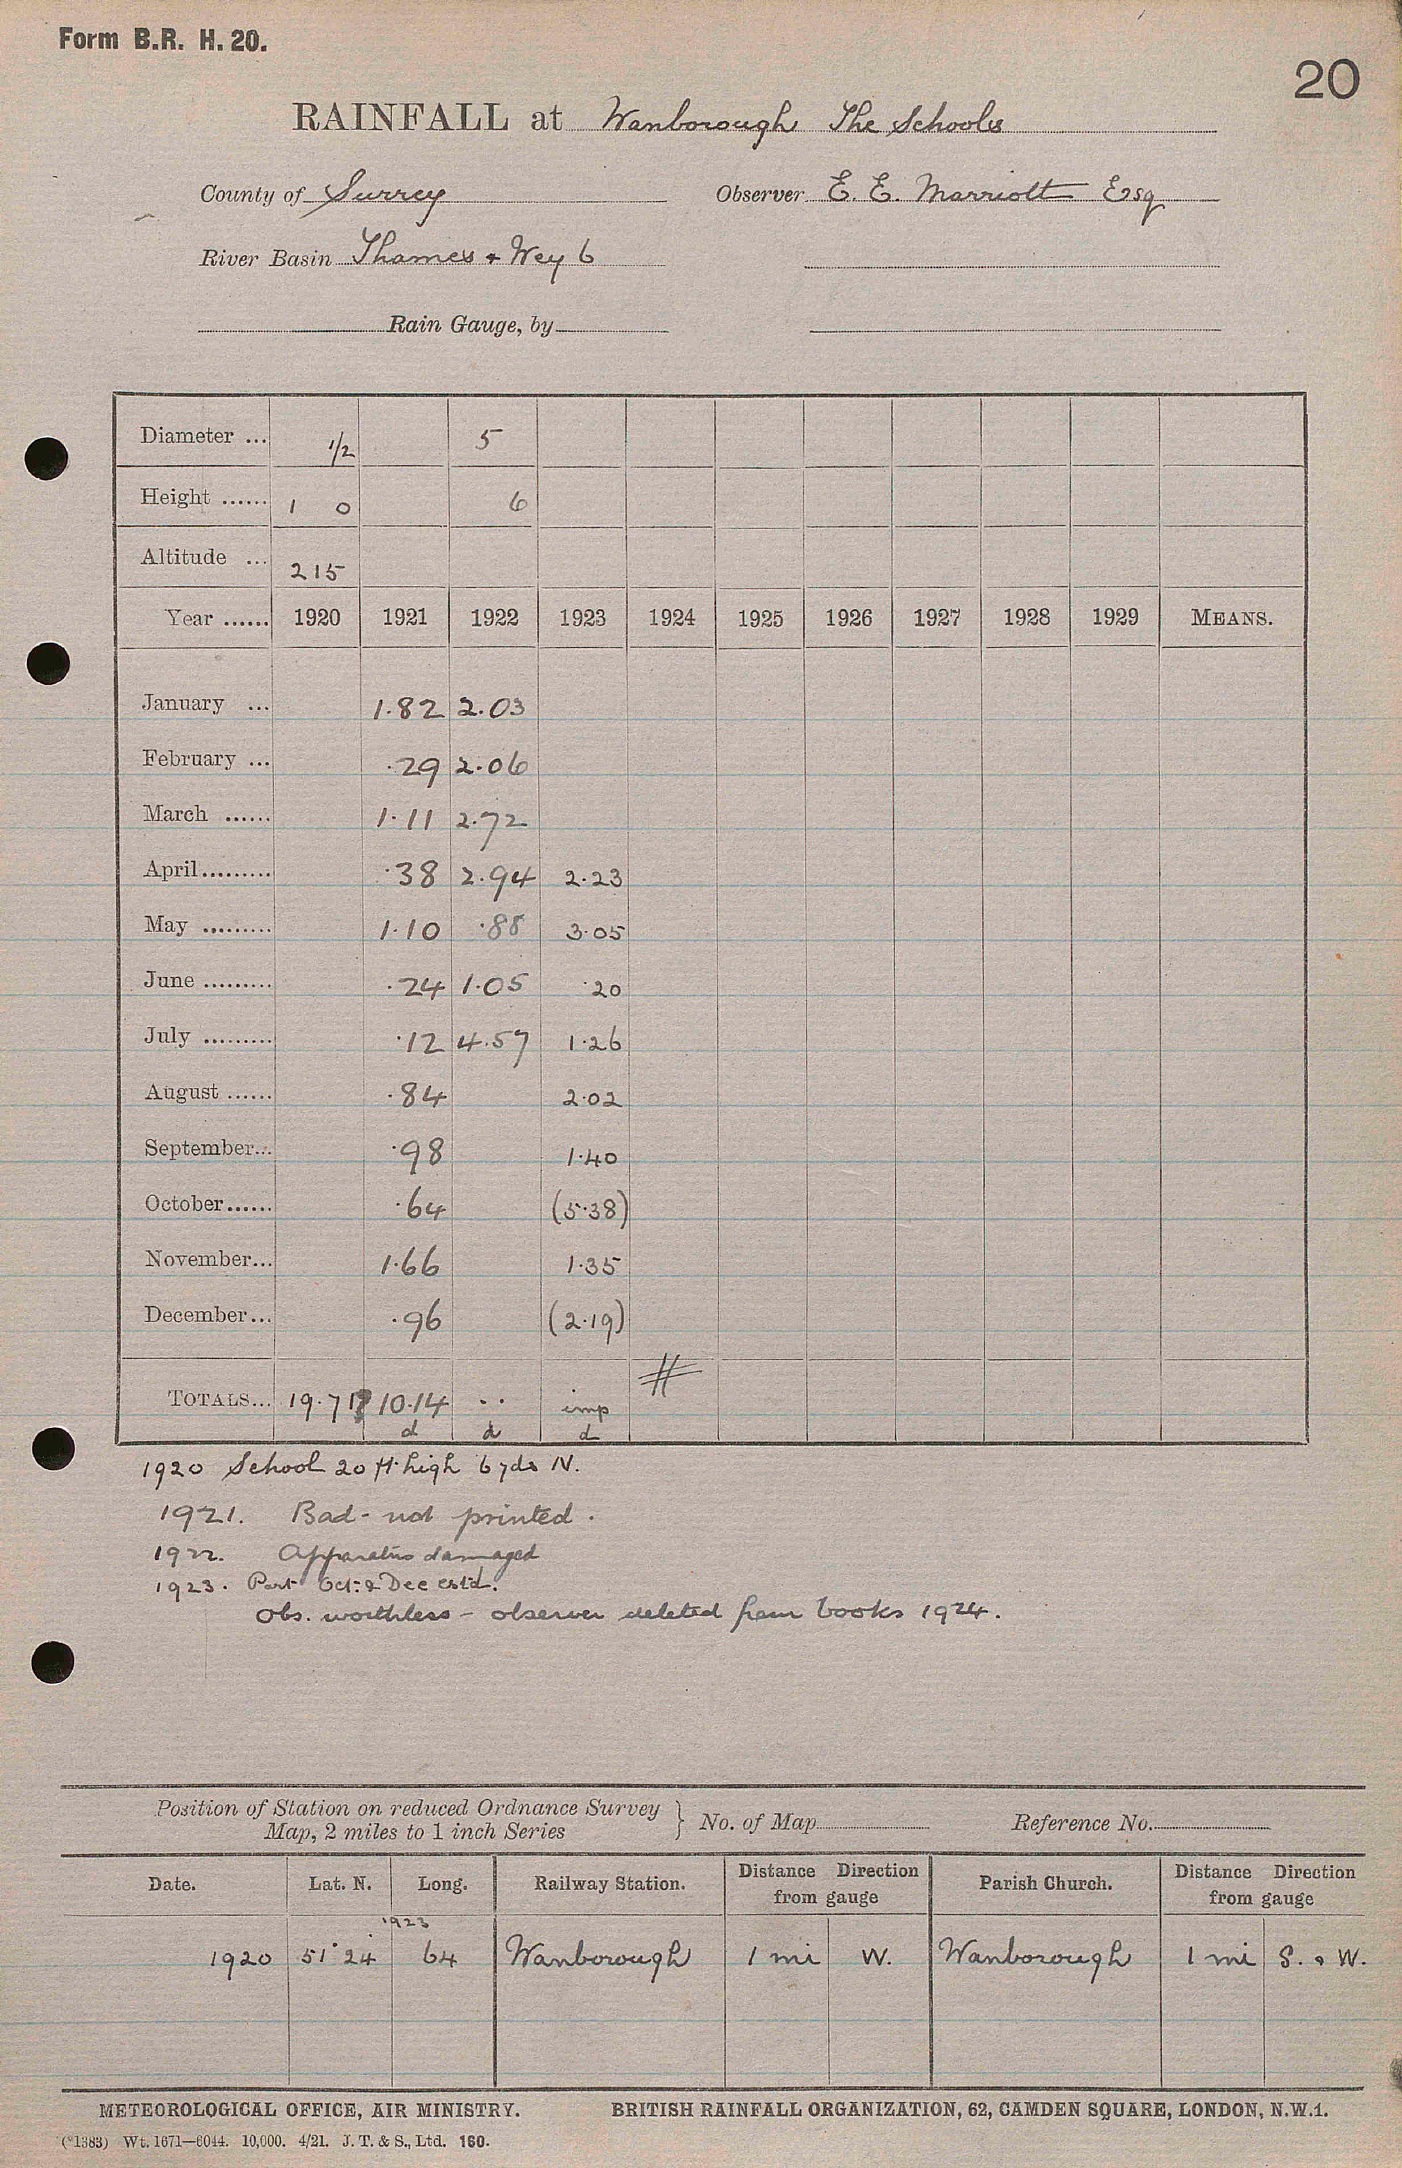 Form B.R. H. 20.
20
RAINFALL at Wanborough The Schools
County of Surrey Observer E. E. Marriott Esq
River Basin Thames & Wey 6
Rain Gauge, by
Diameter ... ½ 5
Height ...... 1 0 6
Altitude ... 215
Year ...... 1920 1921 1922 1923 1924 1925 1926 1927 1928 1929 MEANS.
January ... 1.82 2.03
February ... .29 2.06
March ...... 1.11 2.72
April ......... .38 2.94 2.23
May ......... 1.10 .88 3.05
June ......... .24 1.05 .20
July ......... .12 4.57 1.26
August ...... .84 2.02
September... .98 1.40
October...... .64 (5.38)
November... 1.66 1.35
December... .96 (2.19)
#
TOTALS... 19.71 10.14 .. imp
d d d
1920 School 20 ft. high 6 yds N.
1921. Bad - not printed.
1922. Apparatus damaged
1923. Part Oct: & Dec est'd.
Obs. worthless - observer deleted from books 1924.
Position of Station on reduced Ordnance Survey
Map, 2 miles to 1 inch Series } No. of Map Reference No.
Date. Lat. N. Long. Railway Station. Distance Direction from gauge Parish Church. Distance Direction from gauge
1923
1920 51° 24' 64 Wanborough 1 mi W. Wanborough 1 mi S. & W.
METEOROLOGICAL OFFICE, AIR MINISTRY. BRITISH RAINFALL ORGANIZATION, 62, CAMDEN SQUARE, LONDON, N.W.1.
(*1383) Wt. 1671—6044. 10,000. 4/21. J. T. & S., Ltd. 160.